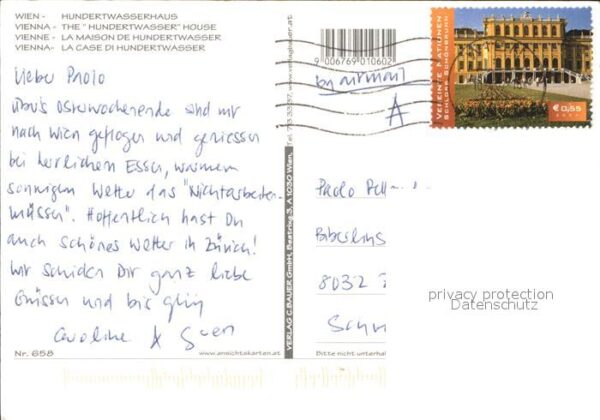 WIEN - HUNDERTWASSERHAUS
VIENNA - THE "HUNDERTWASSER" HOUSE
VIENNE - LA MAISON DE HUNDERTWASSER
VIENNA - LA CASE DI HUNDERTWASSER
Lieber Paolo
Übers Osterwochenende sind wir
nach Wien geflogen und geniessen
bei herrlichem Essen, warmem
sonnigem Wetter das "Nichtarbeiten-
müssen". Hoffentlich hast Du
auch schönes Wetter in Zürich!
Wir schicken Dir ganz liebe
Grüsse und bis
Caroline & Sven
Nr. 858
www.ansichtskarten.at
VERLAG C. BAUER GmbH, Beatrixg. 3, A 1030 Wien, Tel. 713 33 37, www.verlagbauer.at
9 006769 010602
by airmail
A
VEREINTE NATIONEN
SCHLOSS SCHÖNBRUNN
€ 0,55
Paolo
8032
Bitte nicht unterhal
privacy protection
Datenschutz